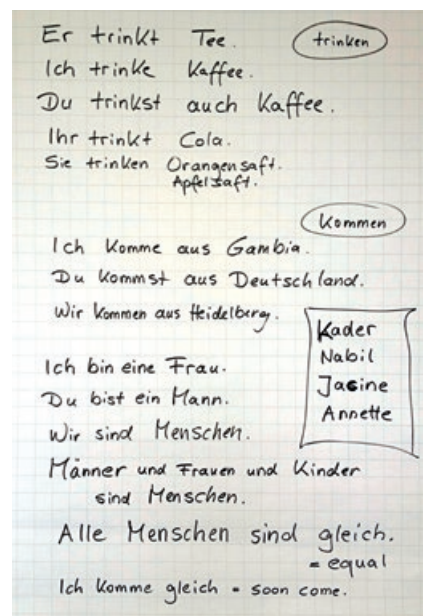 Er trinkt Tee. trinken
Ich trinke Kaffee.
Du trinkst auch Kaffee.
Ihr trinkt Cola.
Sie trinken Orangensaft.
Apfelsaft.
Kommen
Ich komme aus Gambia.
Du kommst aus Deutschland.
Wir kommen aus Heidelberg.
Kader
Nabil
Jasine
Annette
Ich bin eine Frau.
Du bist ein Mann.
Wir sind Menschen.
Männer und Frauen und Kinder
sind Menschen.
Alle Menschen sind gleich.
= equal
Ich komme gleich = soon come.